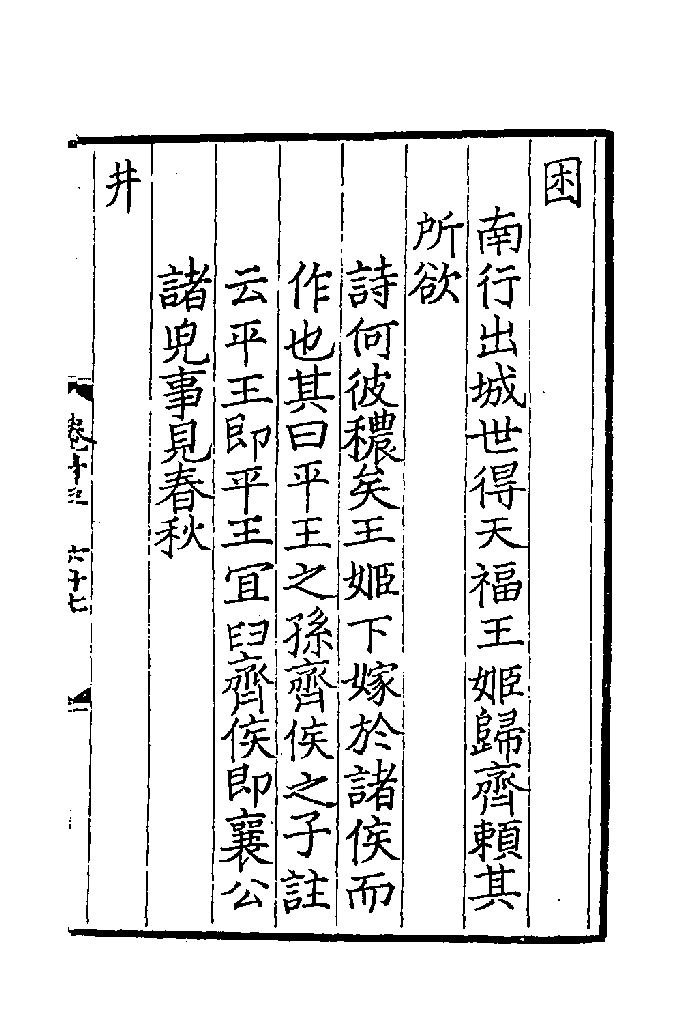 困
南行出城世得天福王姬歸齊賴其
所欲
詩何彼穠矣王姬下嫁於諸侯而
作也其曰平王之孫齊侯之子註
云平王即平王宜臼齊侯即襄公
諸兒事見春秋
井
卷十三 六十七